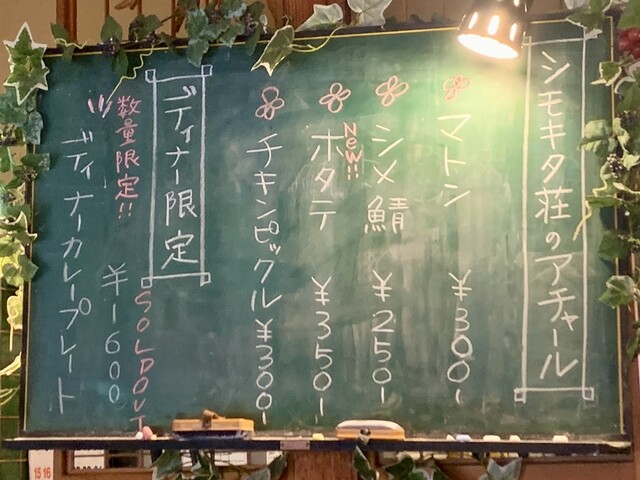 シモキタ荘のアチャール
マトン ¥300-
シメ鯖 ¥250-
New!!
ホタテ ¥350-
チキンピックル ¥300-
ディナー限定
数量限定!!
ディナーカレープレート
¥1600
SOLDOUT
15 16